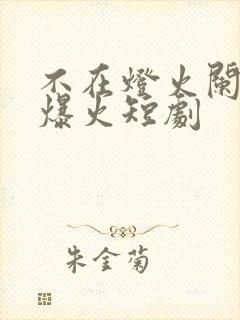 不在燈火闌
爆火短劇
朱金菊